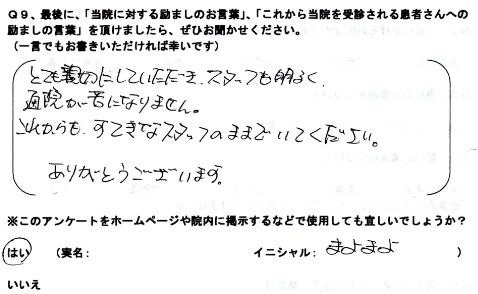 Ｑ９、最後に、「当院に対する励ましのお言葉」、「これから当院を受診される患者さんへの
励ましの言葉」を頂けましたら、ぜひお聞かせください。
（一言でもお書きいただければ幸いです）
とても親切にしていただき、スタッフも明るく、
通院が苦になりません。
これからも、すてきなスタッフのままでいてください。
ありがとうございます。
※このアンケートをホームページや院内に掲示するなどで使用しても宜しいでしょうか？
はい （実名： イニシャル： まよまよ ）
いいえ